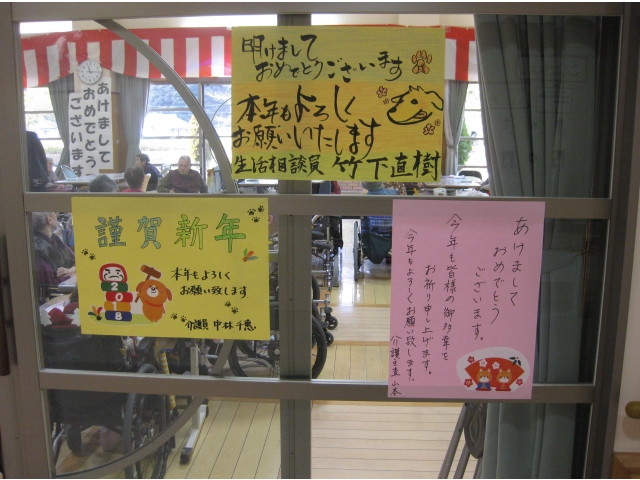 明けまして
おめでとうございます
本年もよろしく
お願いいたします
生活相談員 竹下直樹
あけまして
おめでとう
ございます
謹賀新年
本年もよろしく
お願い致します
介護員 中林千恵
2018
あけまして
おめでとう
ございます。
今年も皆様の御多幸を
お祈り申し上げます。
今年もよろしくお願い致します。
山本